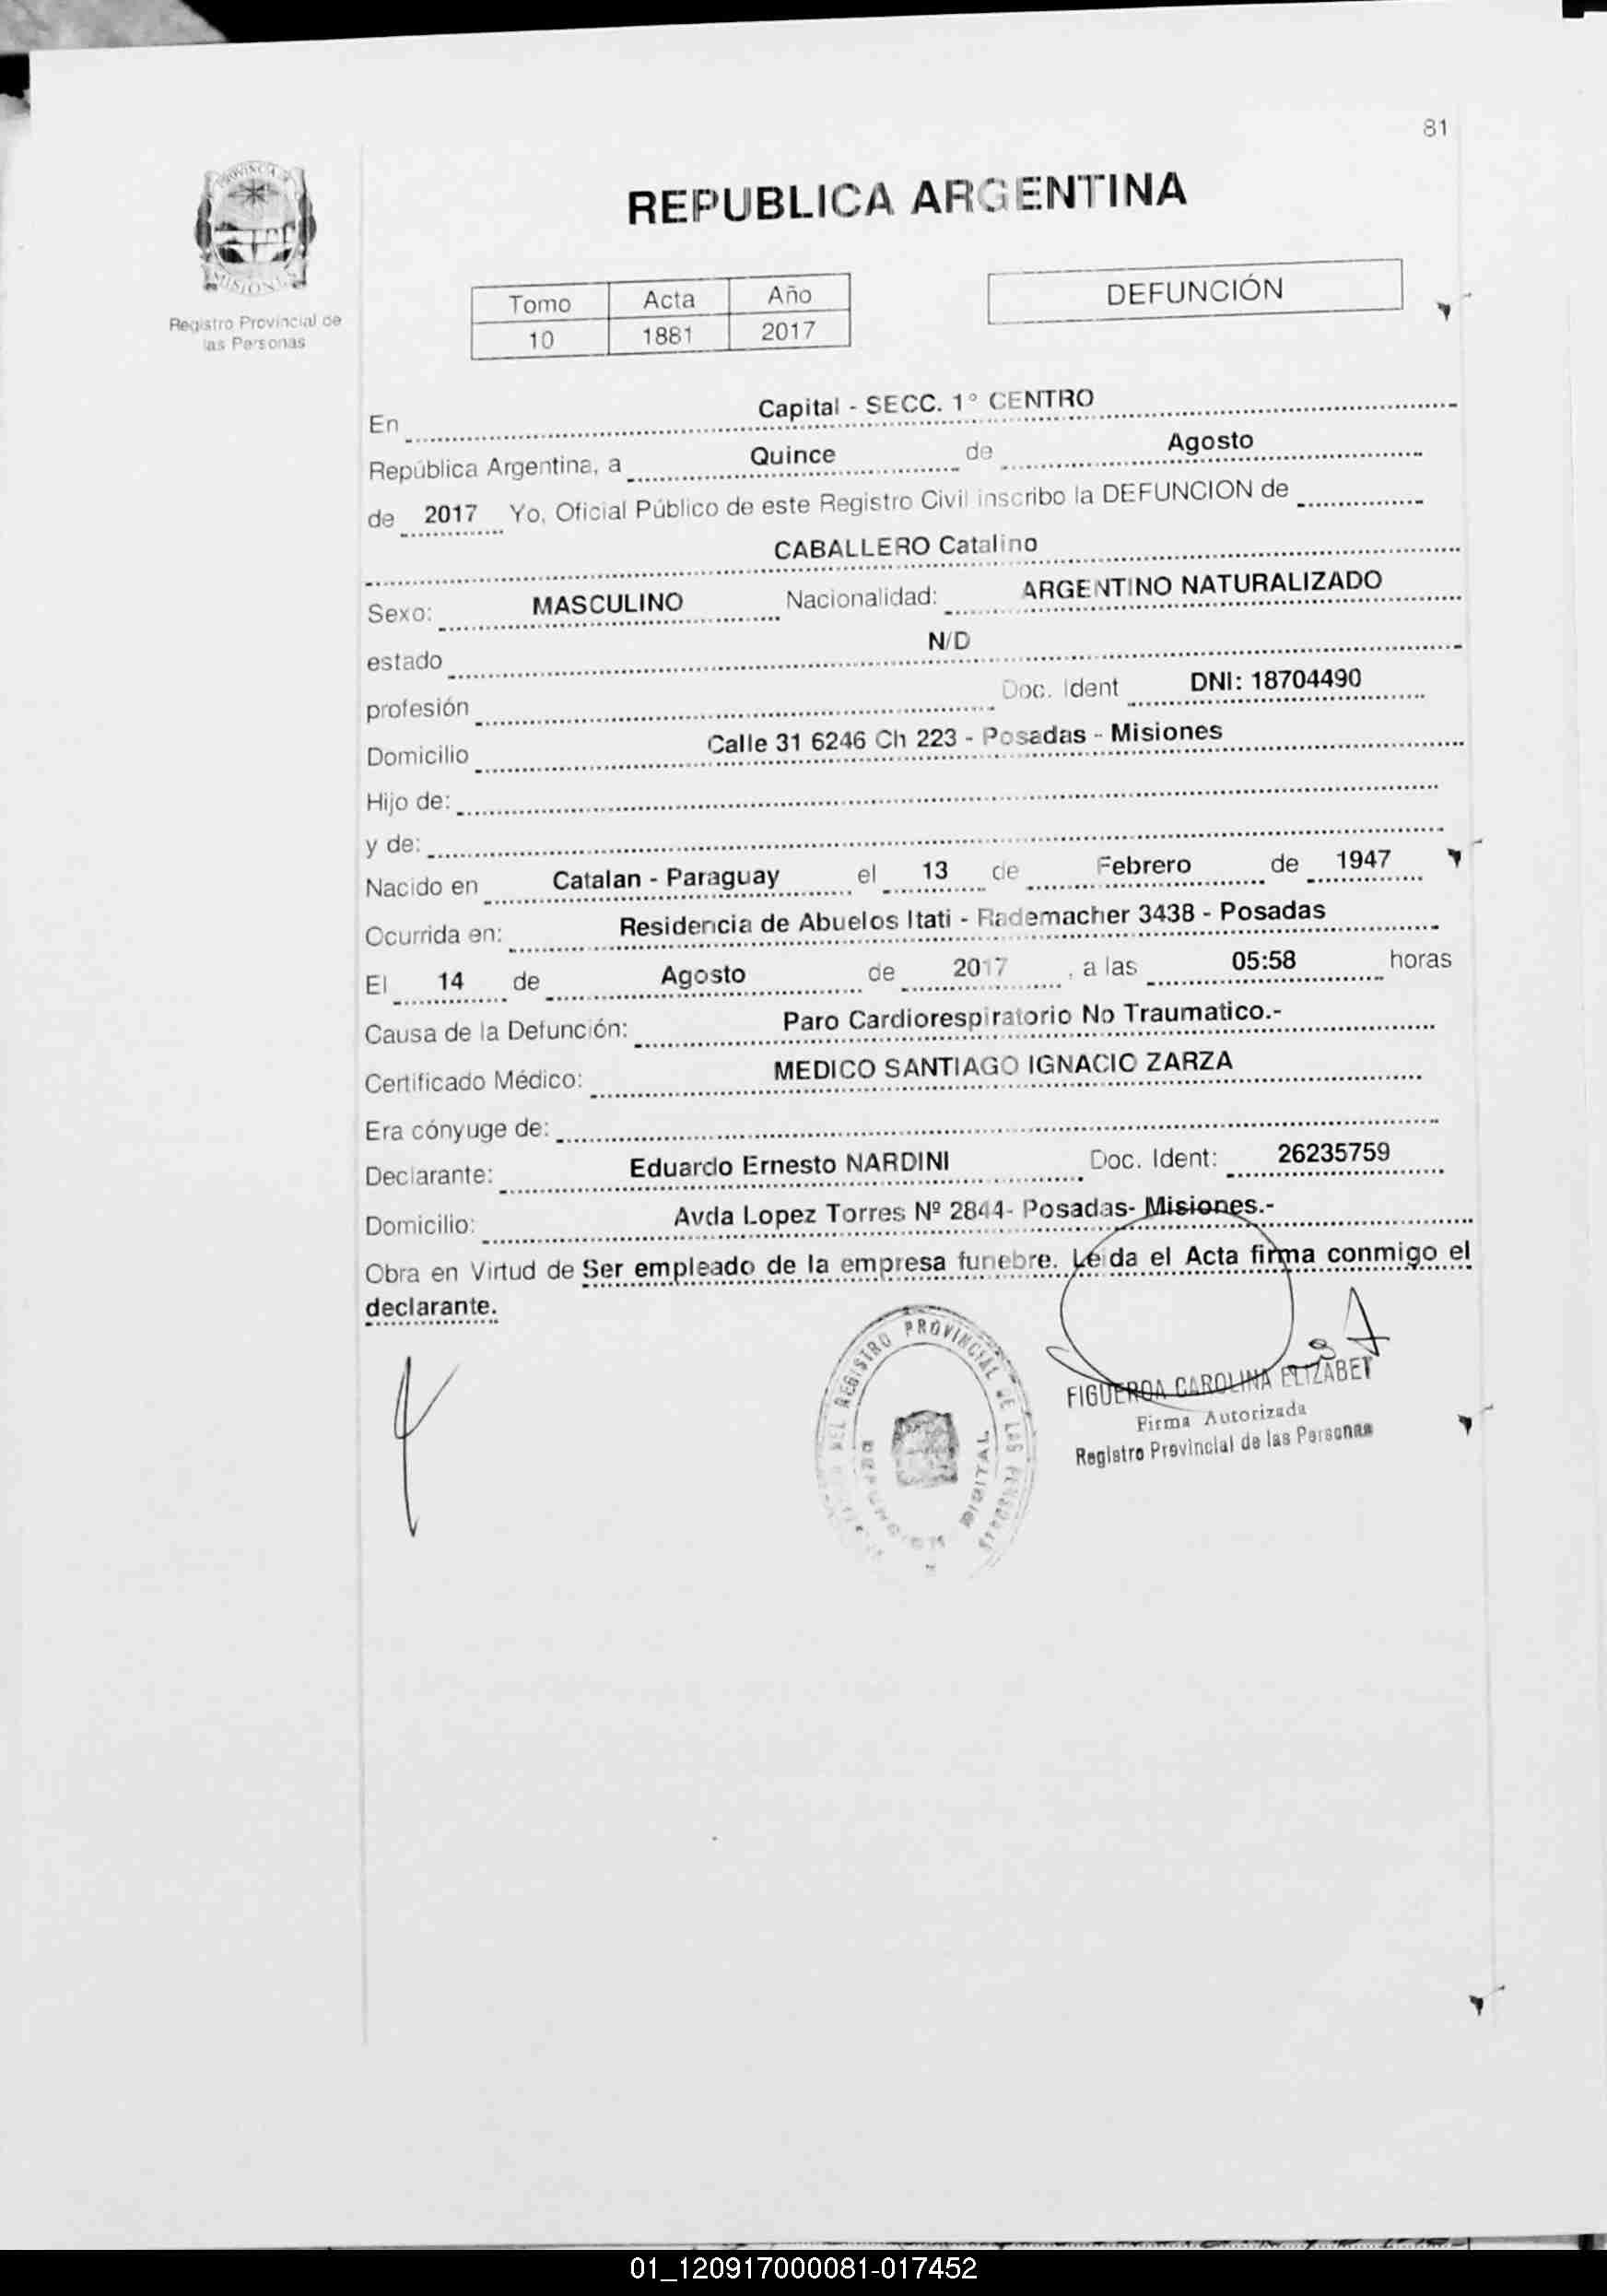 81
PROVINCIA
MISIONES
Registro Provincial de
las Personas
REPUBLICA ARGENTINA
Tomo Acta Año
10 1881 2017
DEFUNCIÓN
En Capital - SECC. 1° CENTRO
República Argentina, a Quince de Agosto
de 2017 Yo, Oficial Público de este Registro Civil inscribo la DEFUNCION de
CABALLERO Catalino
Sexo: MASCULINO Nacionalidad: ARGENTINO NATURALIZADO
estado N/D
profesión Doc. Ident DNI: 18704490
Domicilio Calle 31 6246 Ch 223 - Posadas - Misiones
Hijo de:
y de:
Nacido en Catalan - Paraguay el 13 de Febrero de 1947
Ocurrida en: Residencia de Abuelos Itati - Rademacher 3438 - Posadas
El 14 de Agosto de 2017 , a las 05:58 horas
Causa de la Defunción: Paro Cardiorespiratorio No Traumatico.-
Certificado Médico: MEDICO SANTIAGO IGNACIO ZARZA
Era cónyuge de:
Declarante: Eduardo Ernesto NARDINI Doc. Ident: 26235759
Domicilio: Avda Lopez Torres Nº 2844- Posadas- Misiones.-
Obra en Virtud de Ser empleado de la empresa funebre. Leida el Acta firma conmigo el
declarante.
REGISTRO PROVINCIAL DE LAS PERSONAS
DEFUNCION DIGITAL
FIGUEROA CAROLINA ELIZABET
Firma Autorizada
Registro Provincial de las Personas
01_120917000081-017452